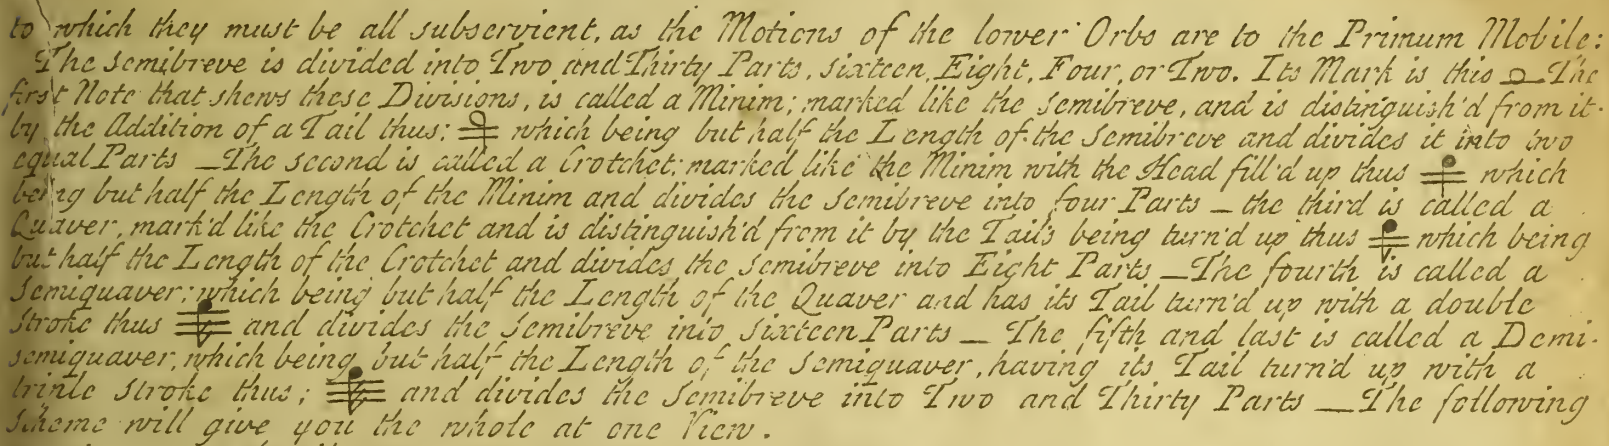 to which they must be all subservient, as the Motions of the lower Orbs are to the Primum Mobile:
The Semibreve is divided into Two and Thirty Parts, Sixteen, Eight, Four, or Two. Its Mark is this — The
first Note that shews these Divisions, is called a Minim; marked like the Semibreve, and is distinguish'd from it
by the Addition of a Tail thus: which being but half the Length of the Semibreve and divides it into two
equal Parts — The second is called a Crotchet: marked like the Minim with the Head fill'd up thus which
being but half the Length of the Minim and divides the Semibreve into four Parts — the third is called a
Quaver, mark'd like the Crotchet and is distinguish'd from it by the Tail's being turn'd up thus which being
but half the Length of the Crotchet and divides the Semibreve into Eight Parts — The fourth is called a
Semiquaver; which being but half the Length of the Quaver and has its Tail turn'd up with a double
Stroke thus and divides the Semibreve into Sixteen Parts — The fifth and last is called a Demi-
semiquaver, which being but half the Length of the Semiquaver, having its Tail turn'd up with a
triple Stroke thus; and divides the Semibreve into Two and Thirty Parts — The following
Scheme will give you the whole at one View.